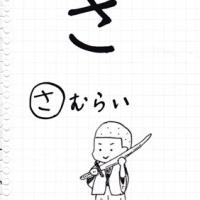 さ
さむらい